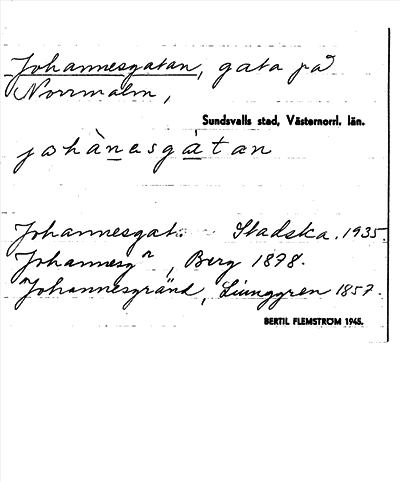 Johannesgatan, gata på
Norrmalm,
Sundsvalls stad, Västernorrl. län.
johànesgàtan
Johannesgat. Stadska. 1935.
Johannesg n, Berg 1878.
Johannesgränd, Ljunggren 1857.
BERTIL FLEMSTRÖM 1945.